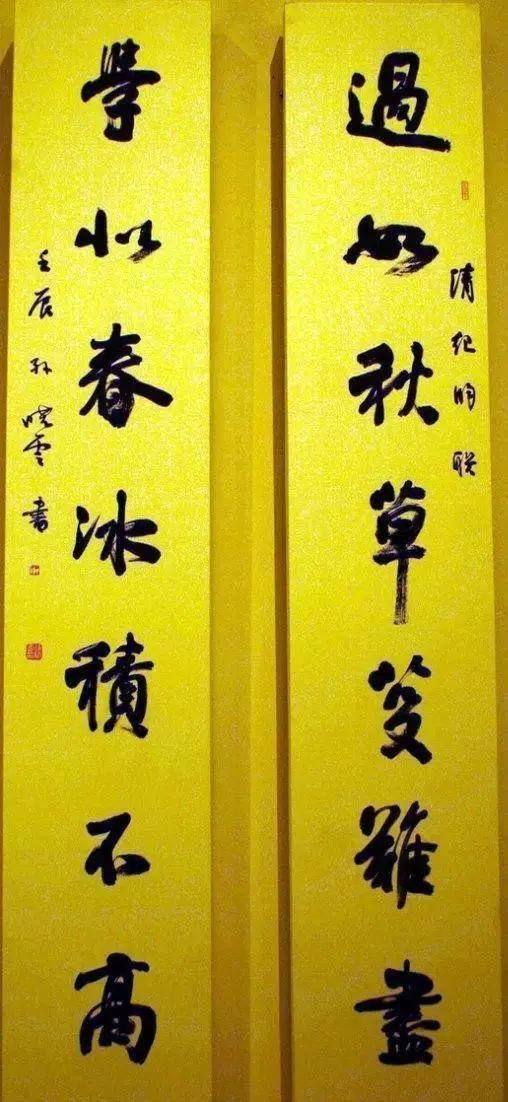 過如秋草芟難盡
清纪昀联
學似春冰積不高
壬辰孙晓云书